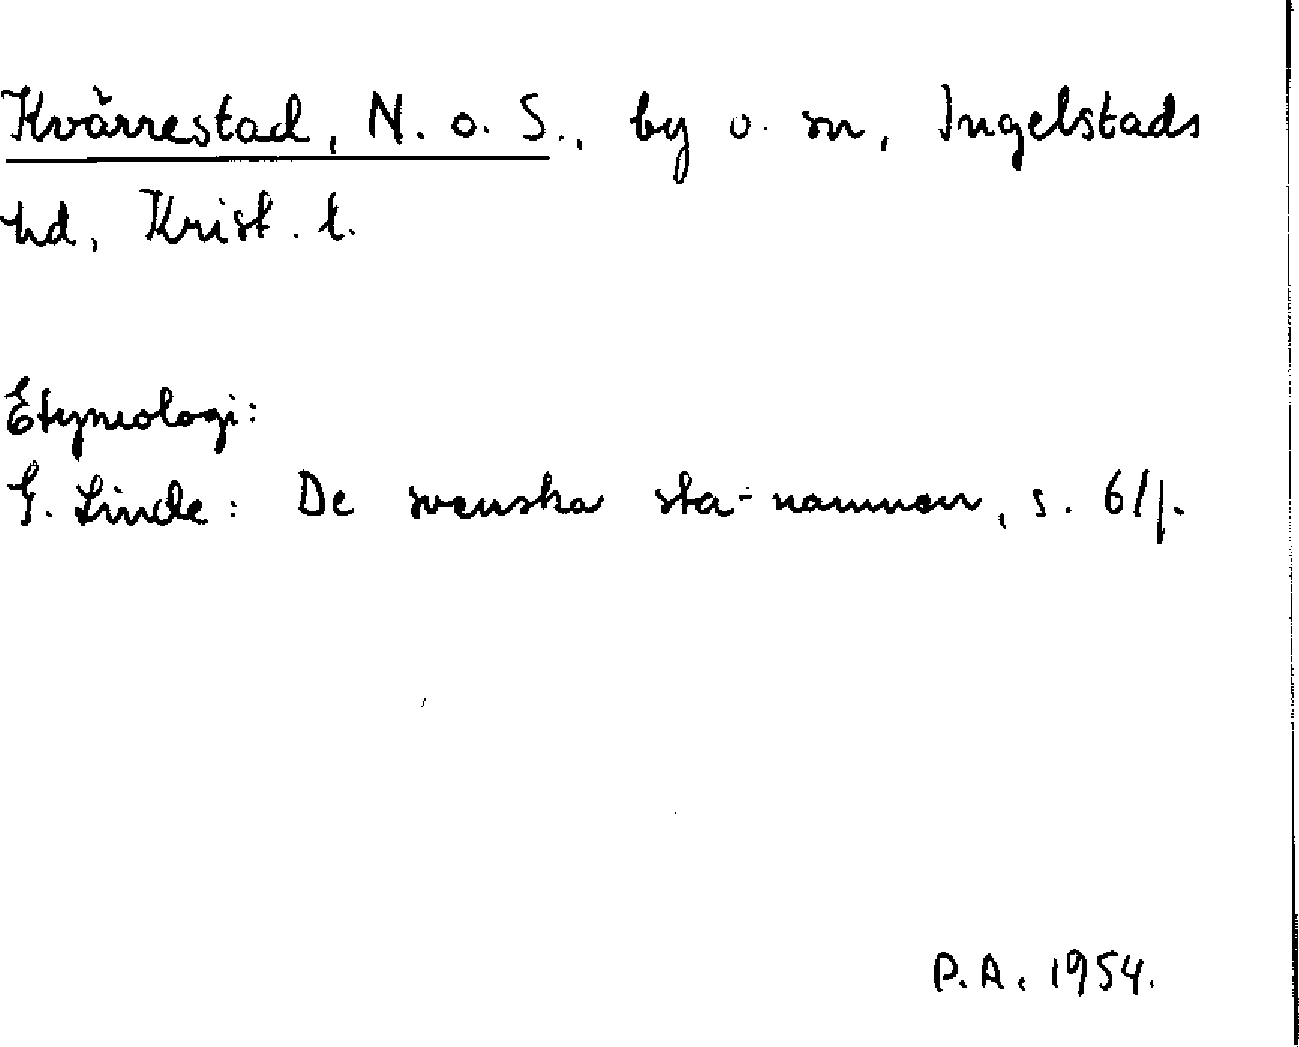 Kvärrestad, N. o. S., by o. sn, Ingelstads
hd, Krist. l.
Etymologi:
G. Linde: De svenska sta-namnen, s. 61f.
P.A. 1954.